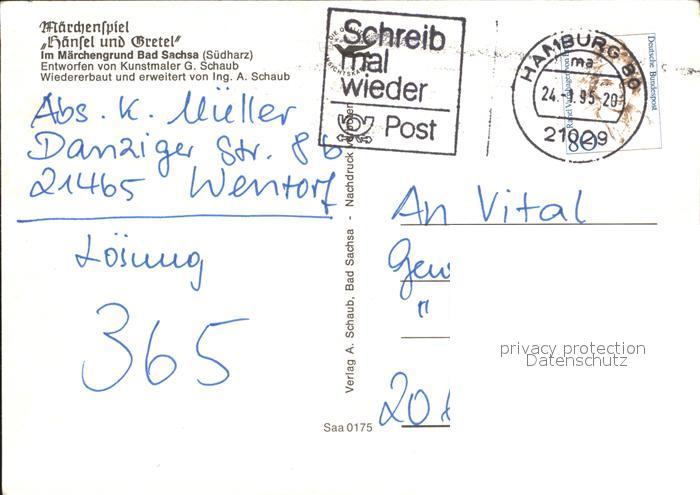 Märchenspiel
„Hänsel und Gretel"
Im Märchengrund Bad Sachsa (Südharz)
Entworfen von Kunstmaler G. Schaub
Wiedererbaut und erweitert von Ing. A. Schaub
Abs. K. Müller
Danziger Str. 8b
21465 Wentorf
Lösung
365
Schreib
mal
wieder
Post
HAMBURG 80
ma
24.-1.95-20
21029
Deutsche Bundespost
80
Verlag A. Schaub, Bad Sachsa - Nachdruck verboten
Saa 0175
An Vital
Gew
"
20
privacy protection
Datenschutz